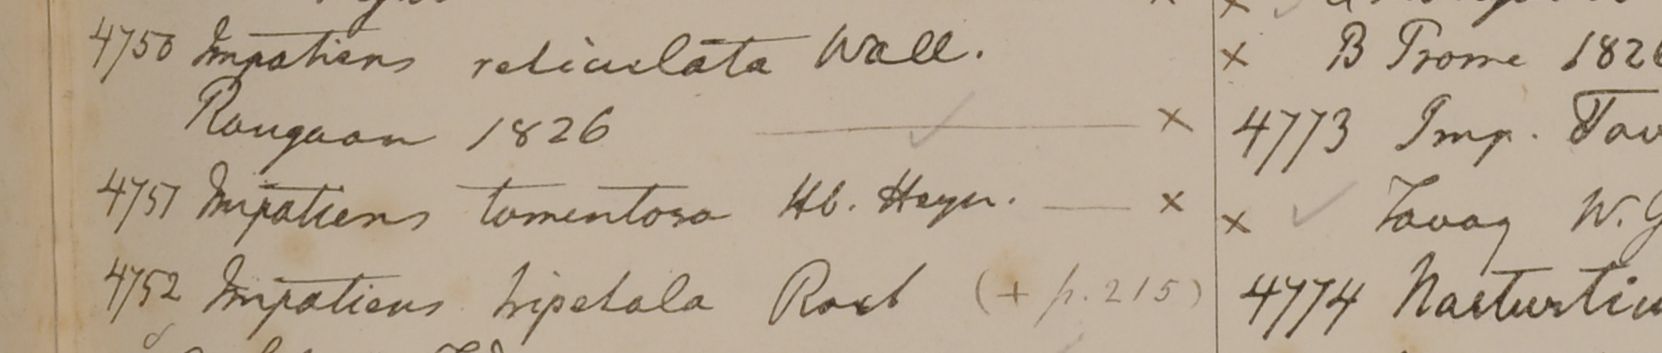 4750 Impatiens reticulata Wall.
Rangoon 1826 ✓ ×
4751 Impatiens tomentosa Hb. Heyn. — ×
4752 Impatiens tripetala Roxb (+ p. 215)
× B Prome 1826
4773 Imp. Tav
× ✓ Tavoy W. G
4774 Nasturtiu